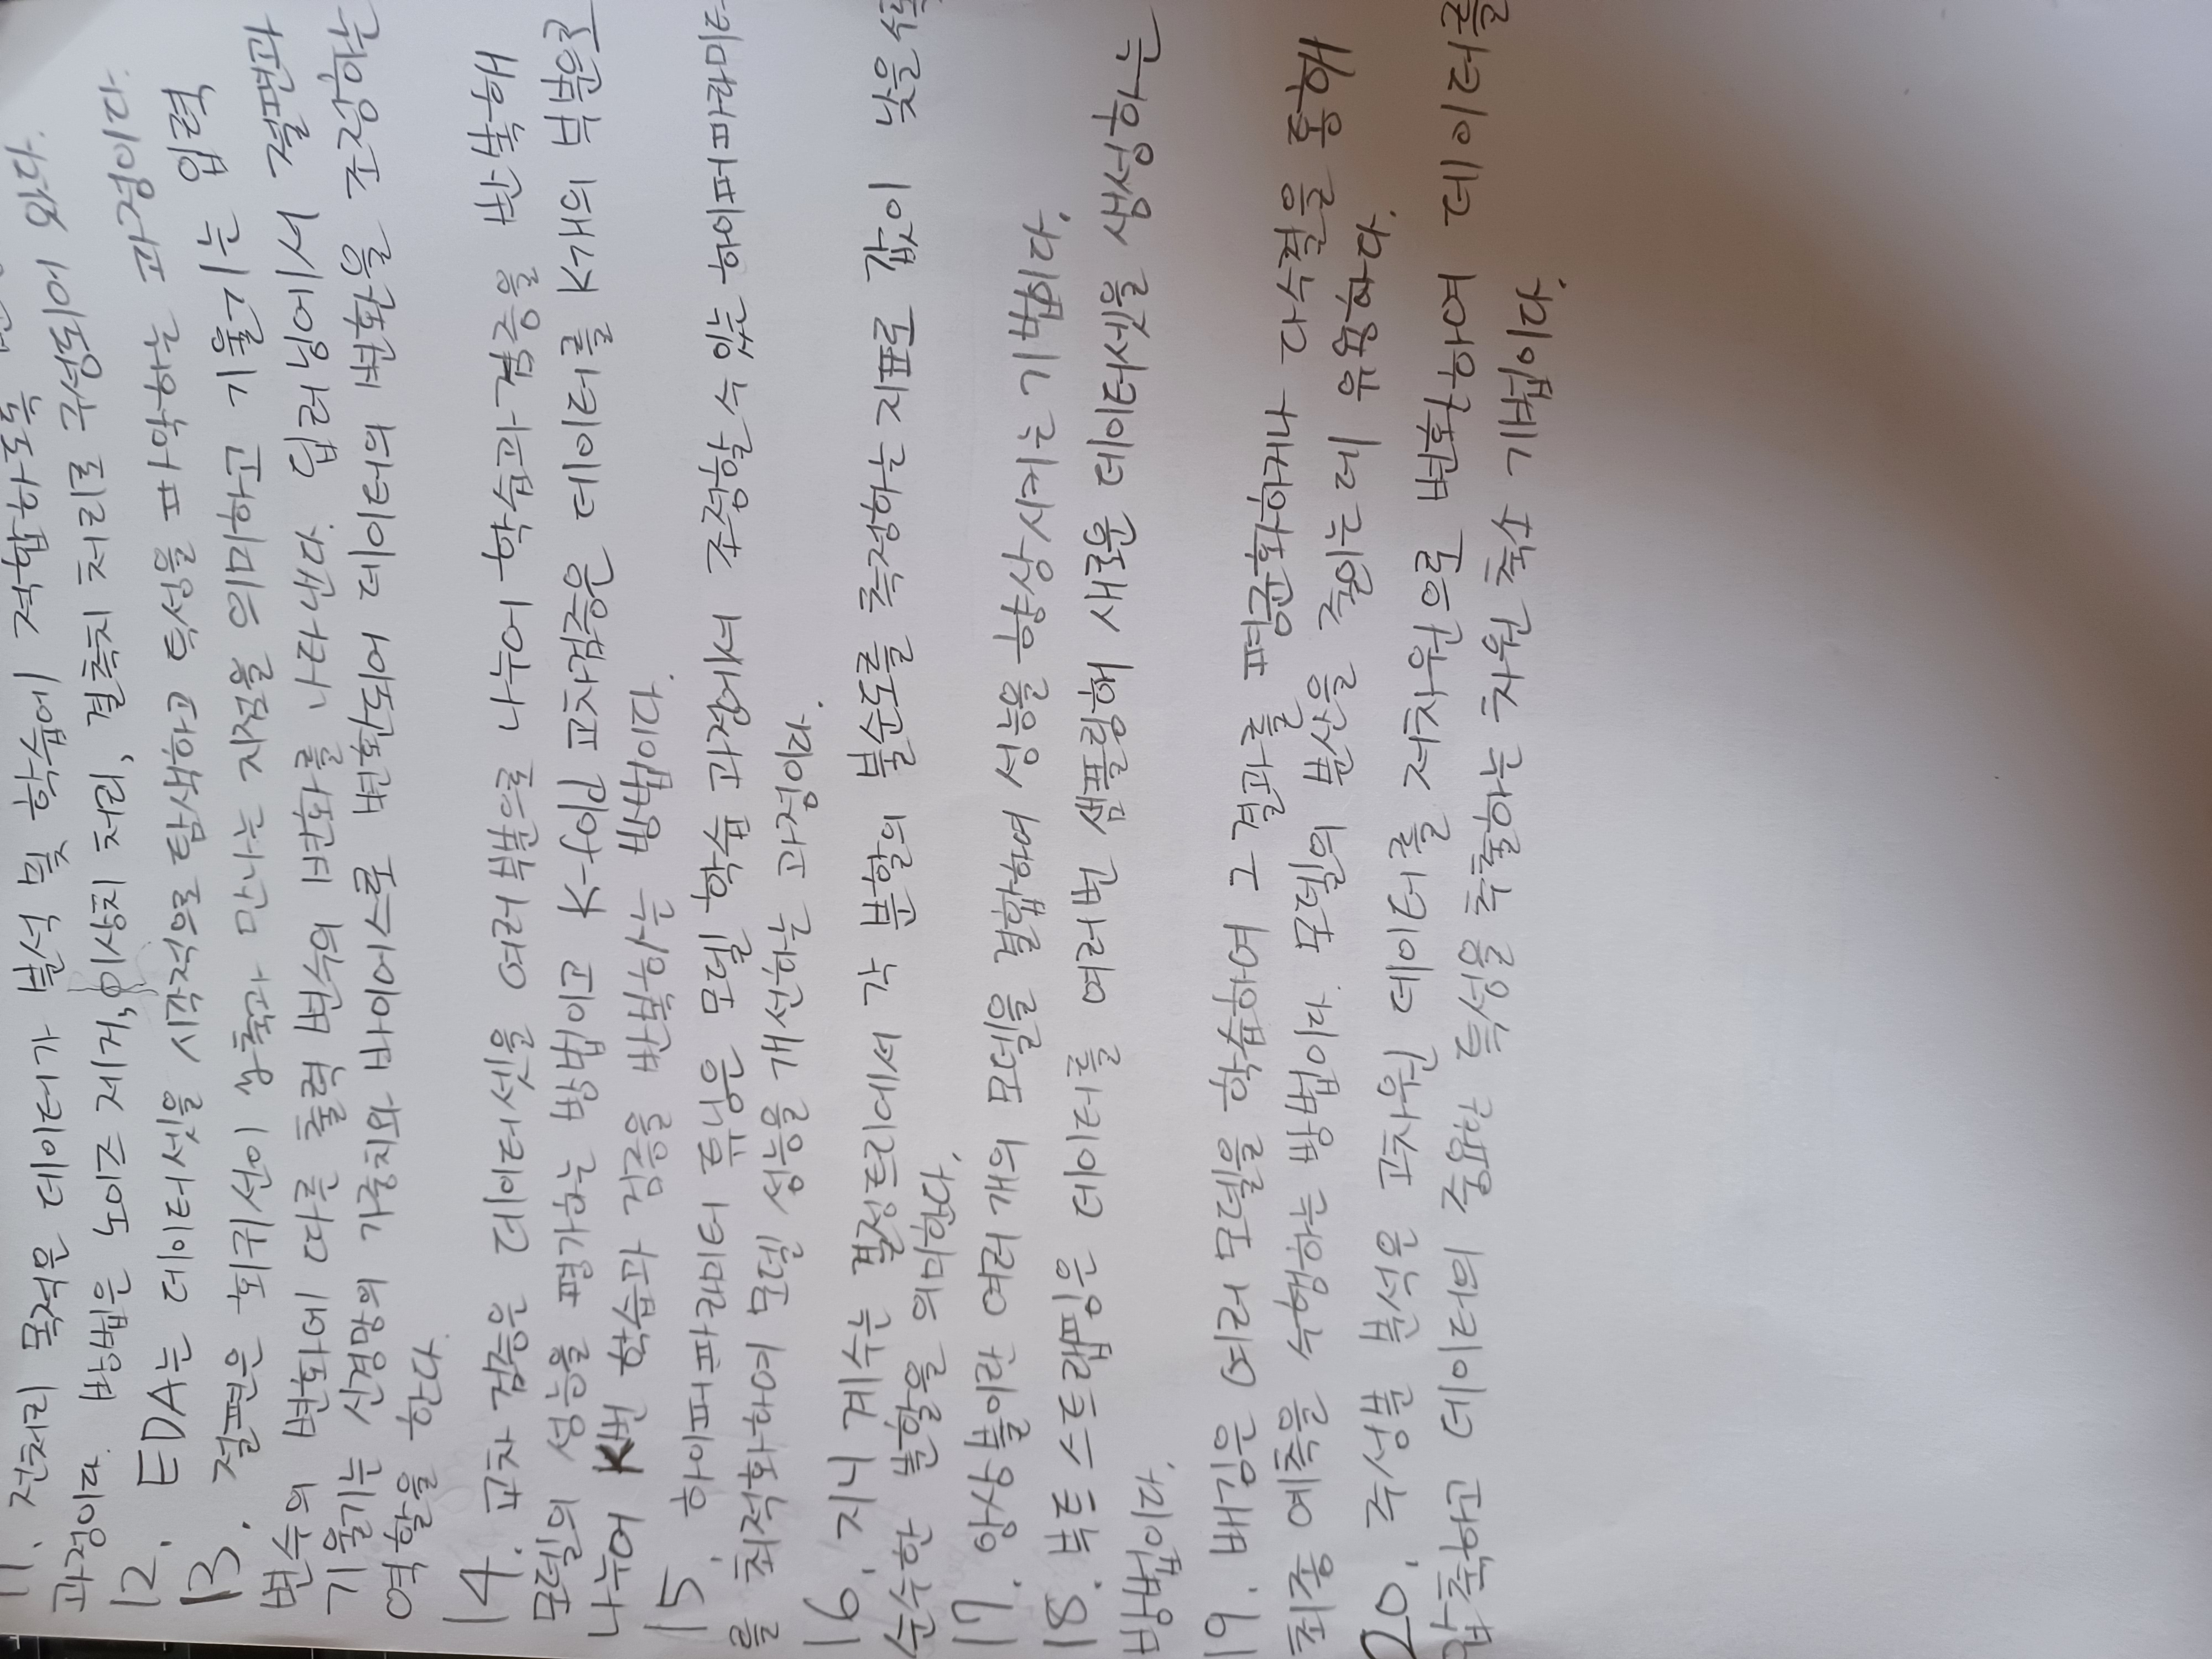 11. 전처리 목적은 데이터가 분석 및 학습에 적합하도록
과정이다. 방법은 노이즈 제거, 이상치 처리, 결측치 처리로 구성되어 있다.
12. EDA는 데이터셋을 시각적으로 탐색하고 특성을 파악하는 과정이다.
13. 절편은 회귀선이 y축과 만나는 지점을 의미하고 기울기는 입력
변수의 변화에 따른 출력 변수의 변화를 나타낸다. 딥러닝에서 절편과
기울기는 신경망의 가중치와 바이어스로 변환되어 데이터의 변환을 조정하는
역할을 한다.
14. 교차 검증은 데이터셋을 여러 부분으로 나누어 학습과 검증을 반복해
모델의 성능을 평가하는 방법이고 K-fold 교차검증은 데이터를 K개의 부분으로
나누어 K번 학습과 검증을 반복하는 방법이다.
15. 하이퍼파라미터 튜닝은 모델 학습 과정에서 조정할 수 있는 하이퍼파라미터
를 최적화하여 모델 성능을 개선하는 과정이다.
16. 지니 계수는 결정트리에서 각 분할의 불순도를 측정하는 지표로 값이 낮을수록
순수한 분할을 의미한다.
17. 앙상블이란 여러 개의 모델을 결합하여 성능을 향상시키는 기법이다.
18. 부트스트랩핑은 데이터를 여러번 샘플링해 새로운 데이터셋을 생성하는
방법이다.
19. 배깅은 여러 모델을 학습하여 그 결과를 평균화하거나 다수결을 통해
최종 예측을 수행하는 방법이다. 모델의 분산을 줄이는데 유용하다.
20. 주성분 분석은 고차원 데이터를 저차원으로 변환하여 데이터를
압축하고 데이터의 중요한 특성을 추출하는 차원 축소 기법이다.